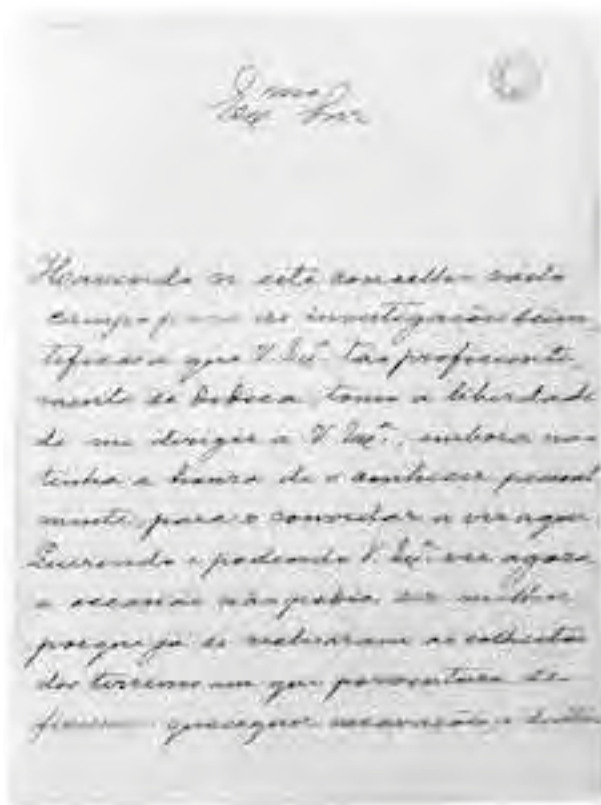 Illmo
Ex Snr
Havendo n'este concelho vasto
campo para as investigações scien
tificas a que V. Exª. tão proficiente
mente se dedica, tomo a liberdade
de me dirigir a V. Exª., embora não
tenha a honra de o conhecer pessoal
mente, para o convidar a vir aqui.
Querendo e podendo V. Exª. vir agora
a occasião não podia ser melhor
porque já se realisaram as colheitas
dos terrenos em que porventura se
quaesquer excavações, e